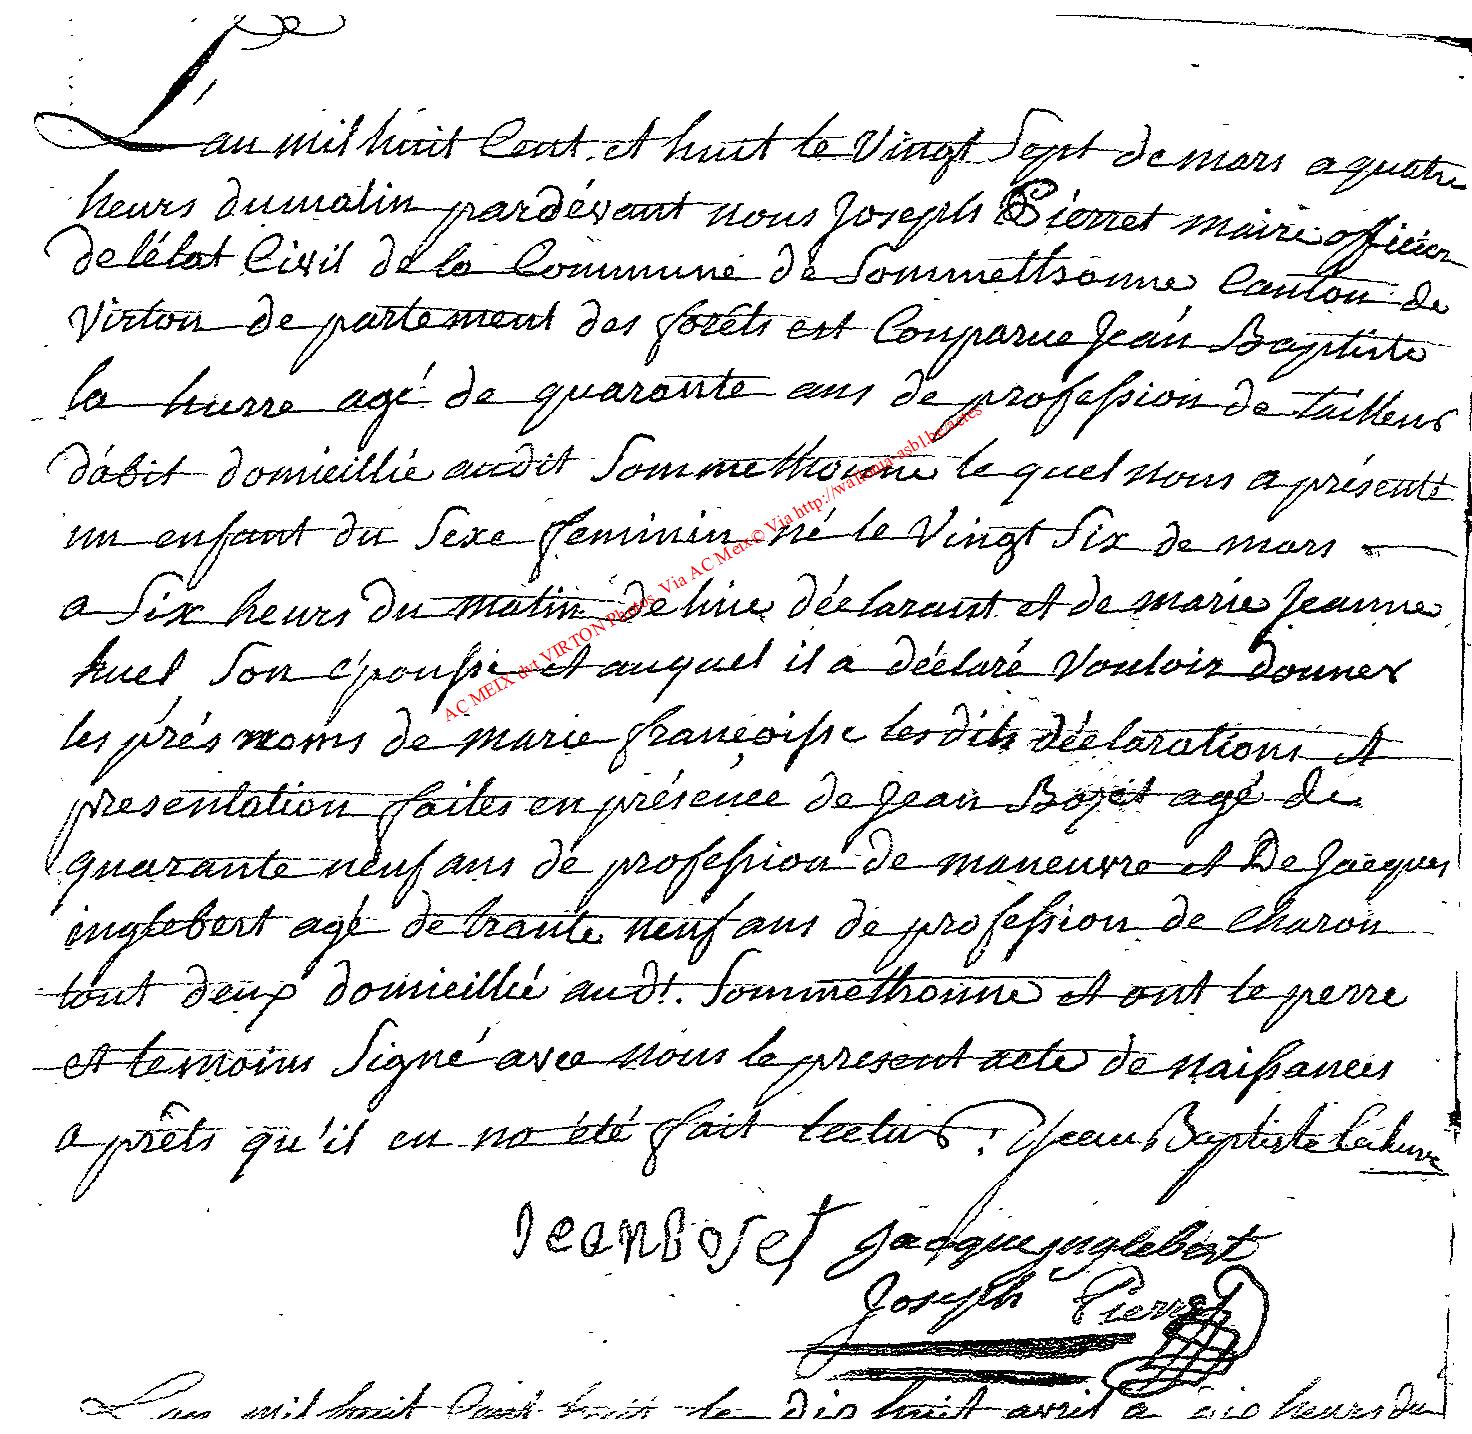 L'an mil huit Cent et huit le Vingt Sept de mars a quatre
heurs du matin pardévant nous Joseph Pierret maire officier
de l'état Civil de la Commune de Sommethonne Canton de
Virton de partement des forêts est Conparue Jean Baptiste
la hurre agé de quarante ans de profession de tailleur
d'abit domicillié audit Sommethonne le quel nous a présenté
un enfant du Sexe feminin né le Vingt Six de mars
a Six heurs du matin de luie déclarant et de marie Jeanne
huel Son épousse et auquel il a déclaré Vouloir donner
les prés noms de marie françoisse les dits déclarations et
presentation faites en présence de Jean Bozet agé de
quarante neuf ans de profession de maneuvre et De Jacques
inglebert agé de trante neuf ans de profession de Charon
tout deux domicillié audt. Sommethonne et ont le perre
et temoins Signé avec nous le present acte de naissances
a prêts qu'il en na été fait lectur. Jean Baptiste Lahure
Jean Boset Jacque inglebert
Joseph Pierret
L'an mil huit Cent huit le dix huit avril a six heurs du
AC MEIX dvt VIRTON Photos Via AC Meix © Via http://wallonia-asbl.be/actes